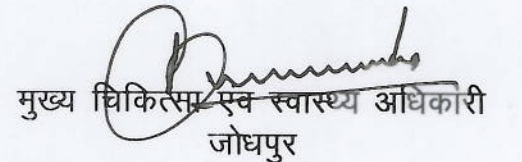 मुख्य चिकित्सा एवं स्वास्थ्य अधिकारी
जोधपुर